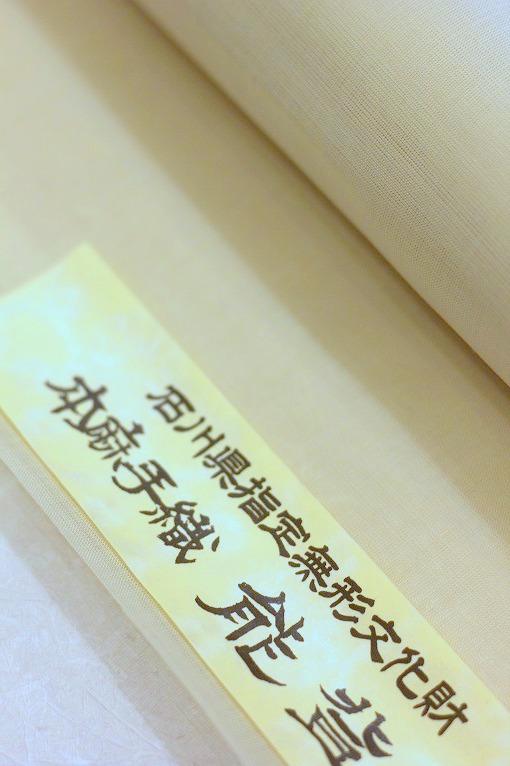 石川県指定無形文化財
本麻手織 能登